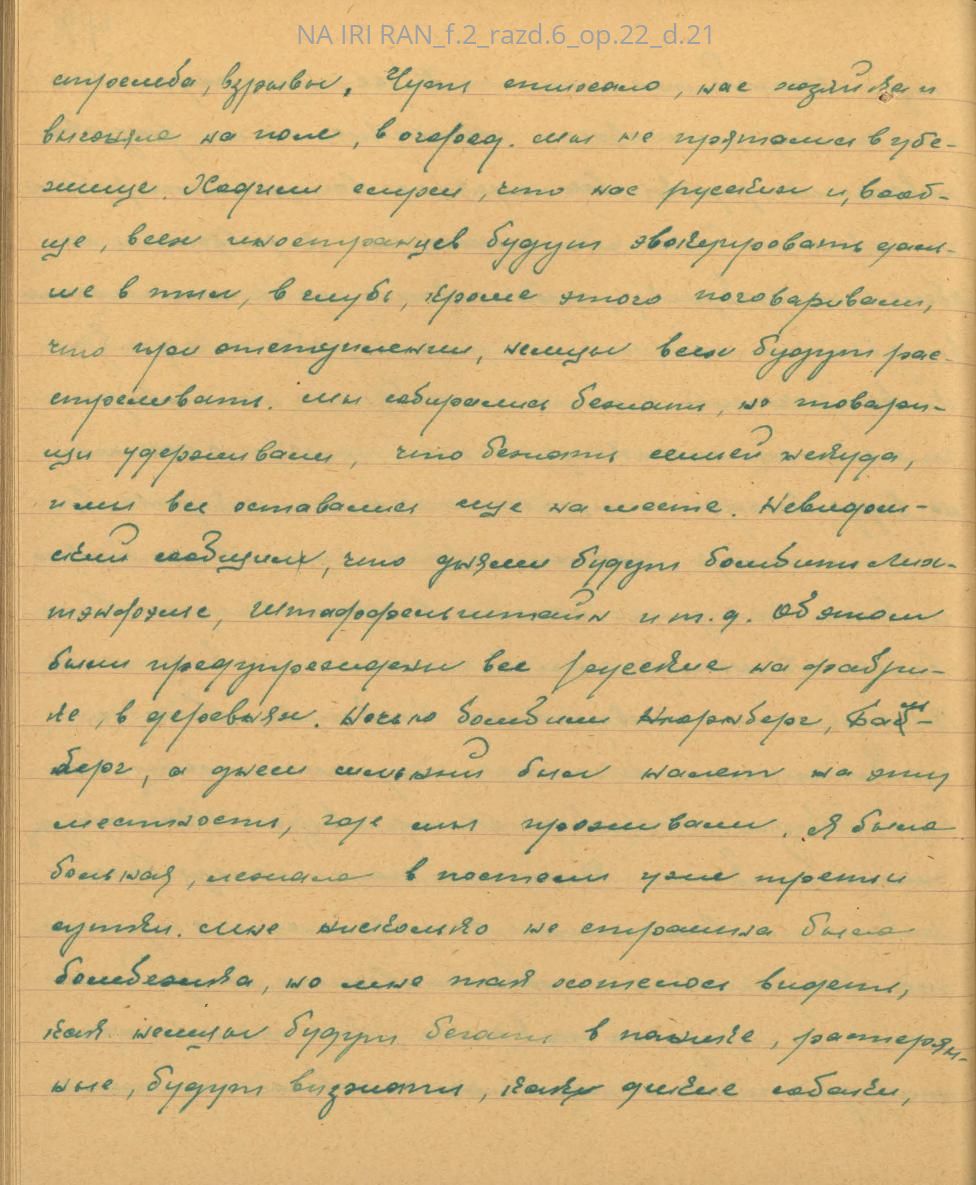 NA IRI RAN_f.2_razd.6_op.22_d.21
стрельба, взрывы. Чуть стихало, нас хозяйка и
выгоняла на поле, в огород. Мы не прятались в убе-
жище. Ходили слухи, что нас русских и, вооб-
ще, всех иностранцев будут эвакуировать даль-
ше в тыл, в глубь, кроме этого поговаривали,
что при отступлении, немцы всех будут рас-
стреливать. Мы собирались бежать, но товари-
щи удерживали, что бежать семьей некуда,
и мы все оставались еще на месте. Невидом-
ский сообщил, что днями будут бомбить Лих-
тэнфэльс, Штаффельштайн и т.д. Об этом
были предупреждены все русские на фабри-
ке, в деревнях. Ночью бомбили Нюрнберг, Бам-
берг, а днем сильный был налет на эту
местность, где мы проживали. Я была
больная, лежала в постели уже третьи
сутки. Мне нисколько не страшна была
бомбежка, но мне так хотелось видеть,
как немцы будут бегать в панике, растерян-
ные, будут визжать, как дикие собаки,